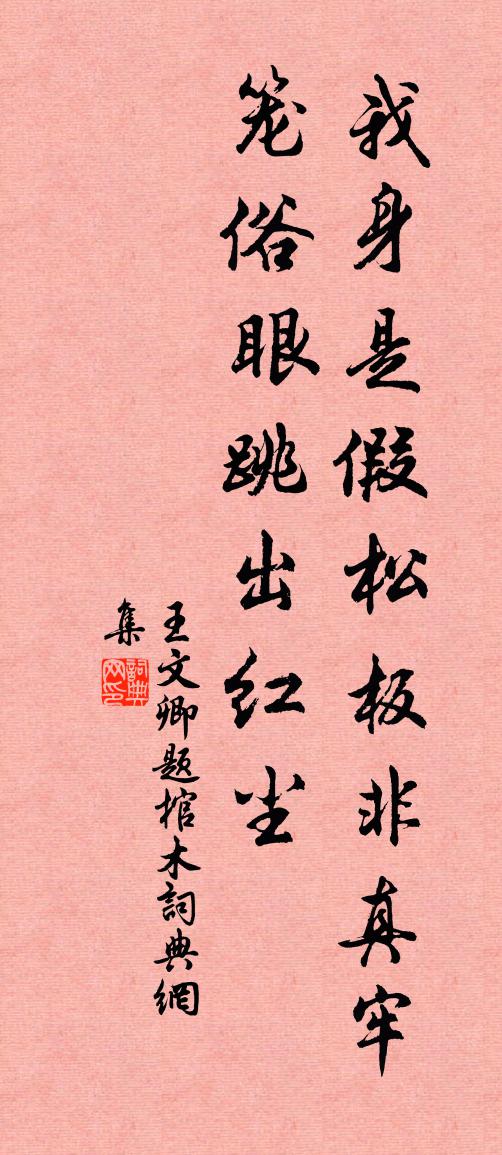 我身是假松板非真牢
笼俗眼跳出红尘
王文卿题棺木詞典網
集
詞典網印